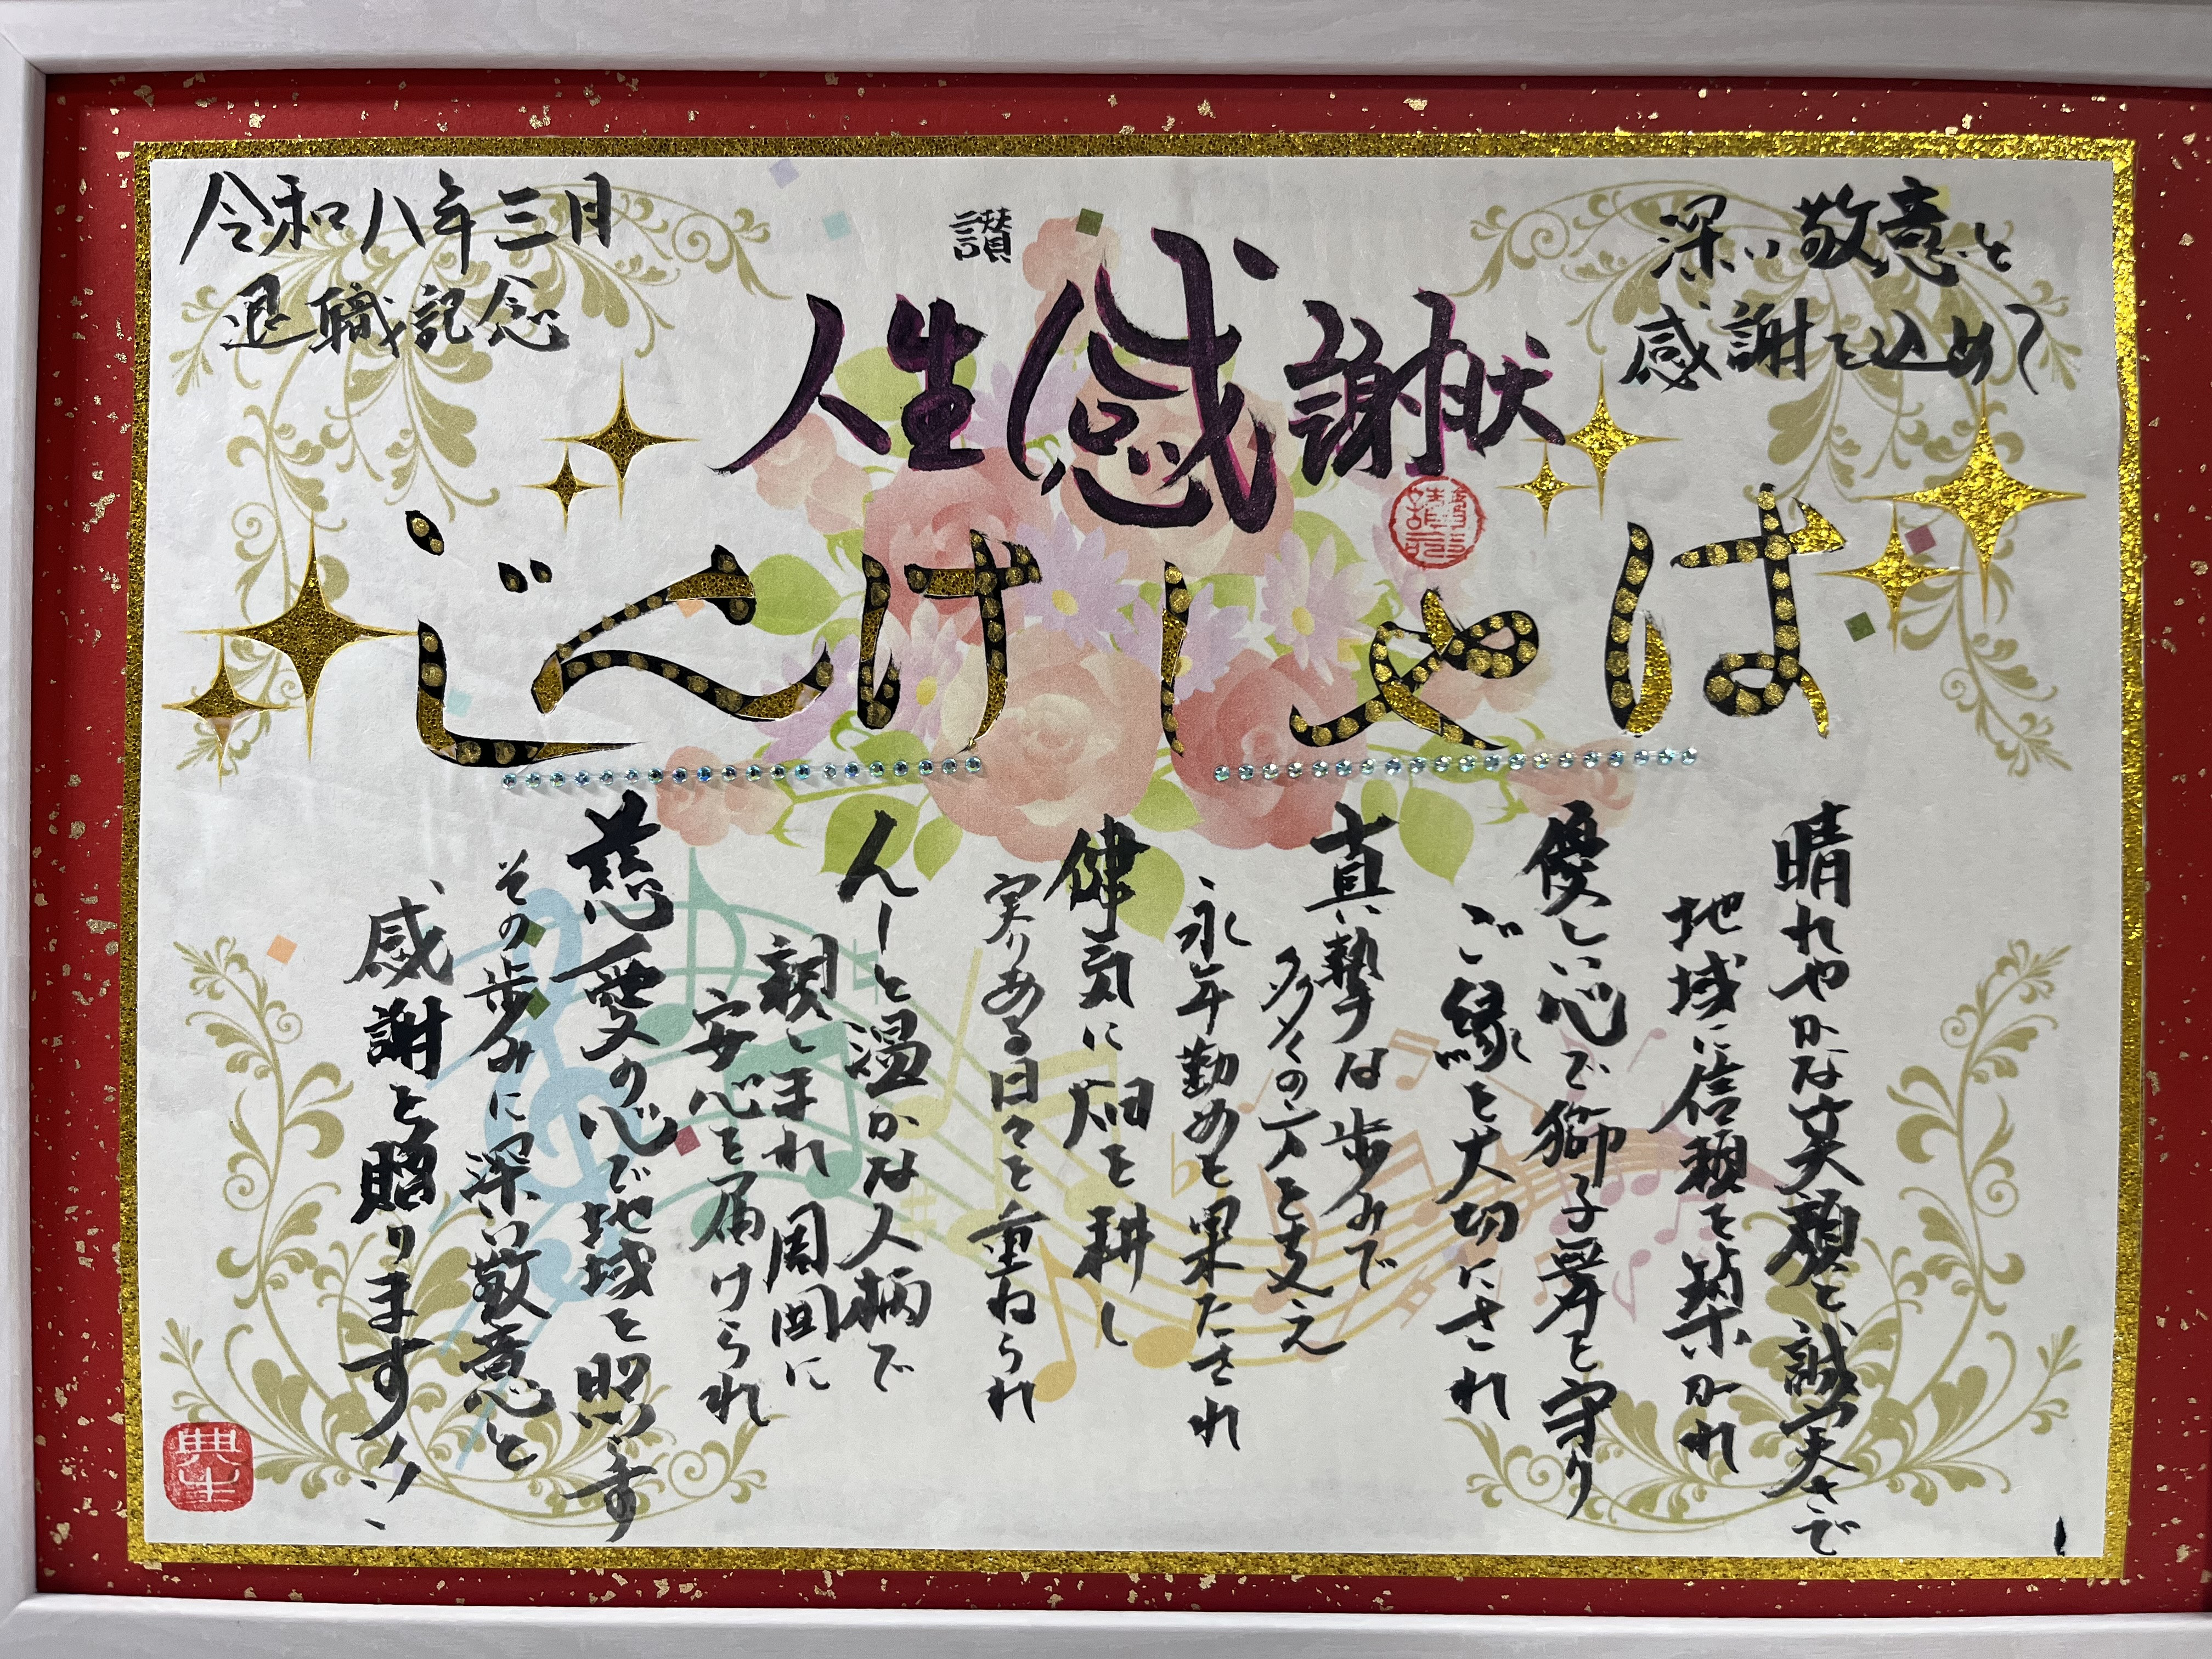 深い敬意と
感謝を込めて
讃
人生感謝状
令和八年三月
退職記念
はやし けんじ
晴れやかな笑顔と誠実さで
地域に信頼を築かれ
優しい心で獅子舞を守り
ご縁を大切にされ
真摯な歩みで
多くの方を支え
永年勤めを果たされ
健気に畑を耕し
実りある日々を重ねられ
んーと温かな人柄で
親しまれ周囲に
安心を届けられ
慈愛の心で地域を照らす
その歩みに深い敬意と
感謝を贈ります!!